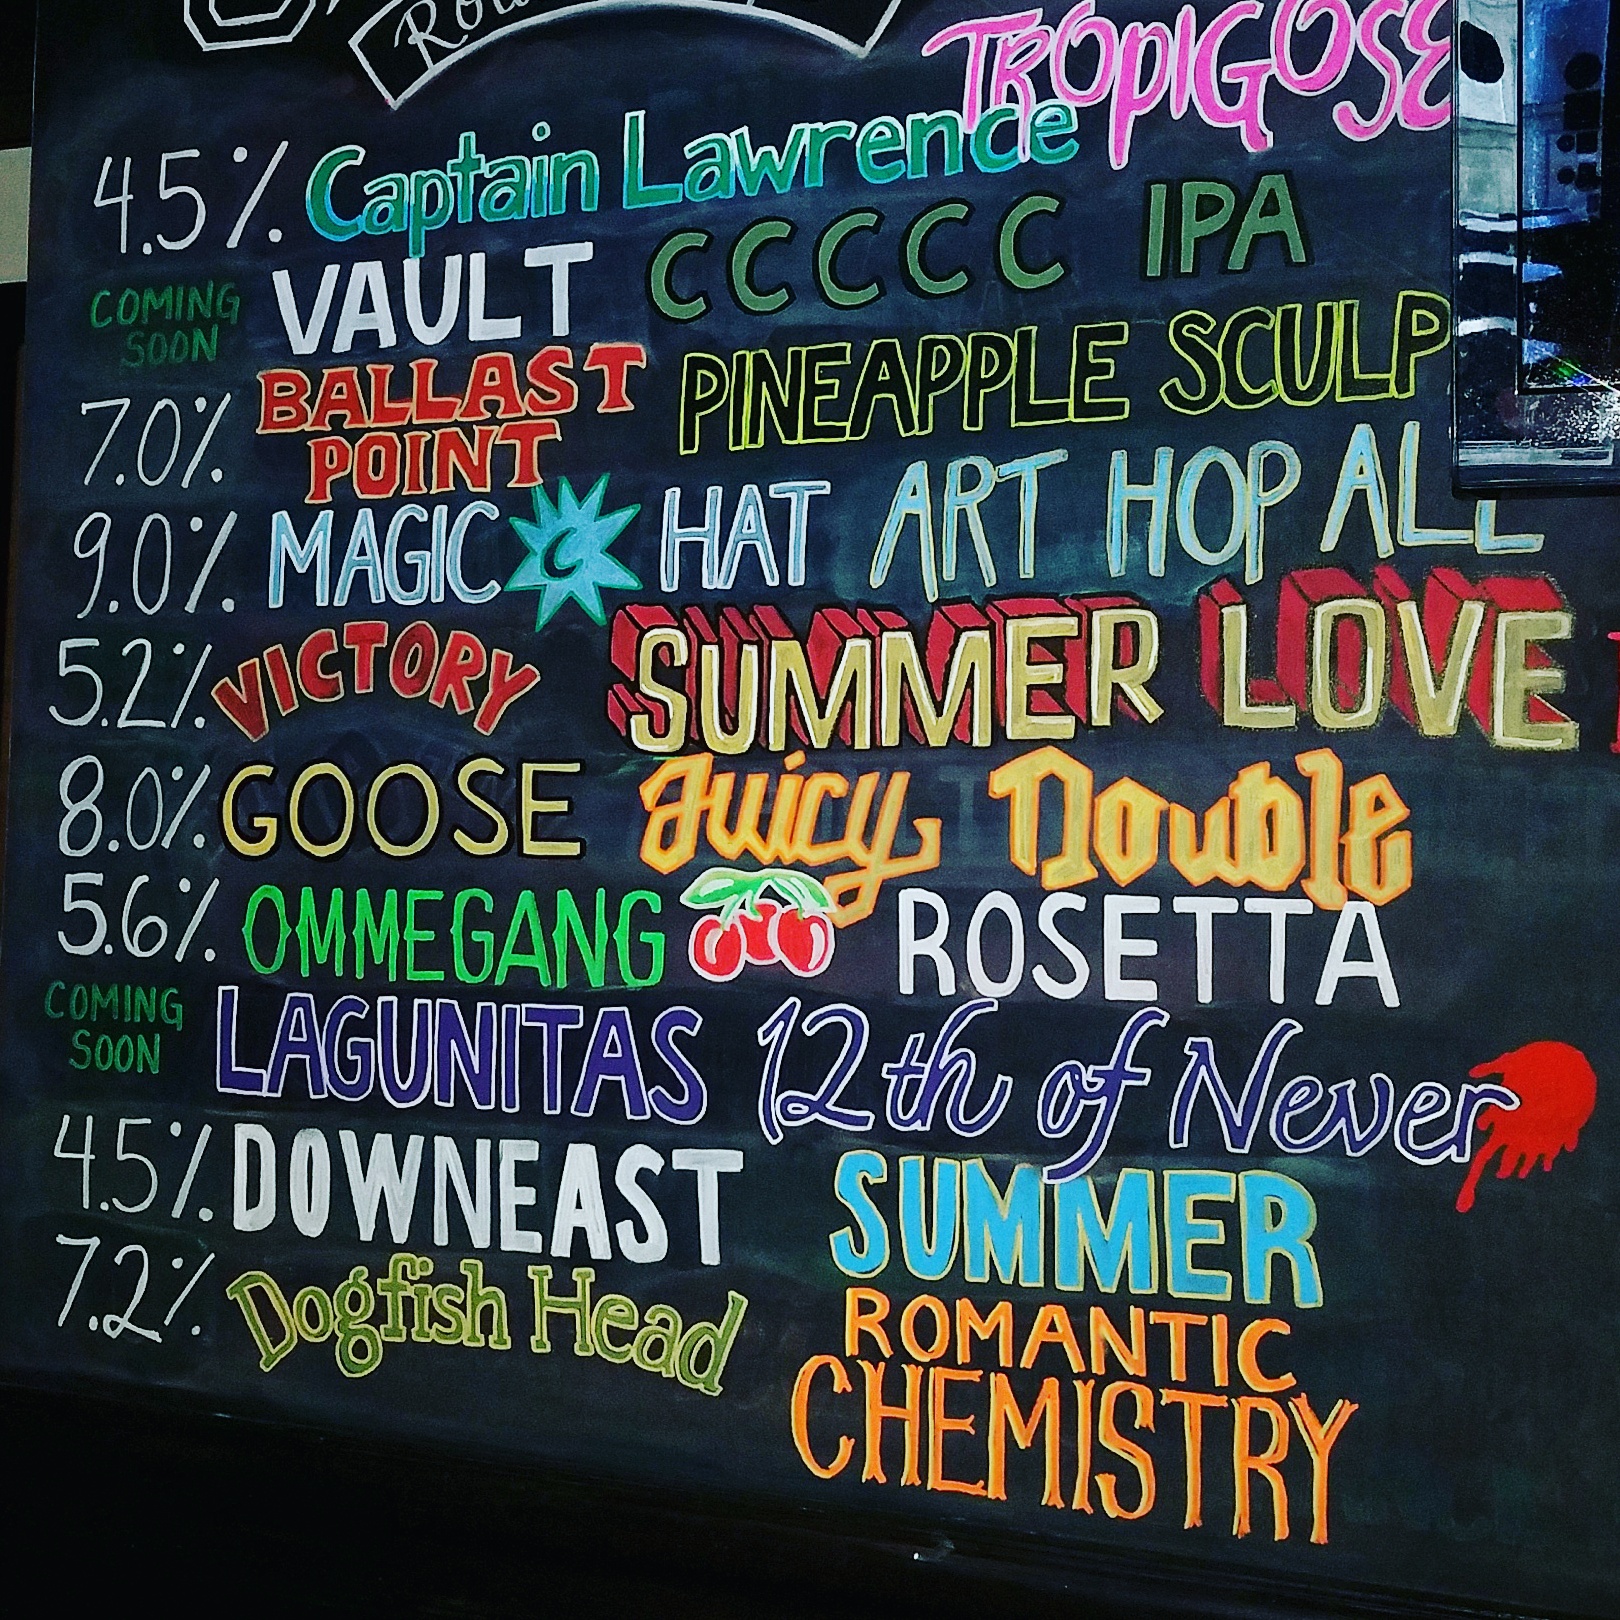 TROPIGOSE
4.5%. Captain Lawrence
COMING SOON VAULT CCCCC IPA
7.0%. BALLAST POINT PINEAPPLE SCULP
9.0%. MAGIC HAT ART HOP ALE
5.2%. VICTORY SUMMER LOVE
8.0%. GOOSE Juicy Double
5.6%. OMMEGANG ROSETTA
COMING SOON LAGUNITAS 12th of Never
4.5%. DOWNEAST SUMMER
7.2%. Dogfish Head ROMANTIC CHEMISTRY